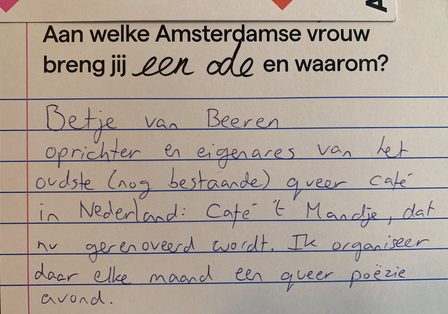 Aan welke Amsterdamse vrouw
breng jij een ode en waarom?
Betje van Beeren
oprichter en eigenares van het
oudste (nog bestaande) queer café
in Nederland: Café 't Mandje, dat
nu gerenoveerd wordt. Ik organiseer
daar elke maand een queer poëzie
avond.